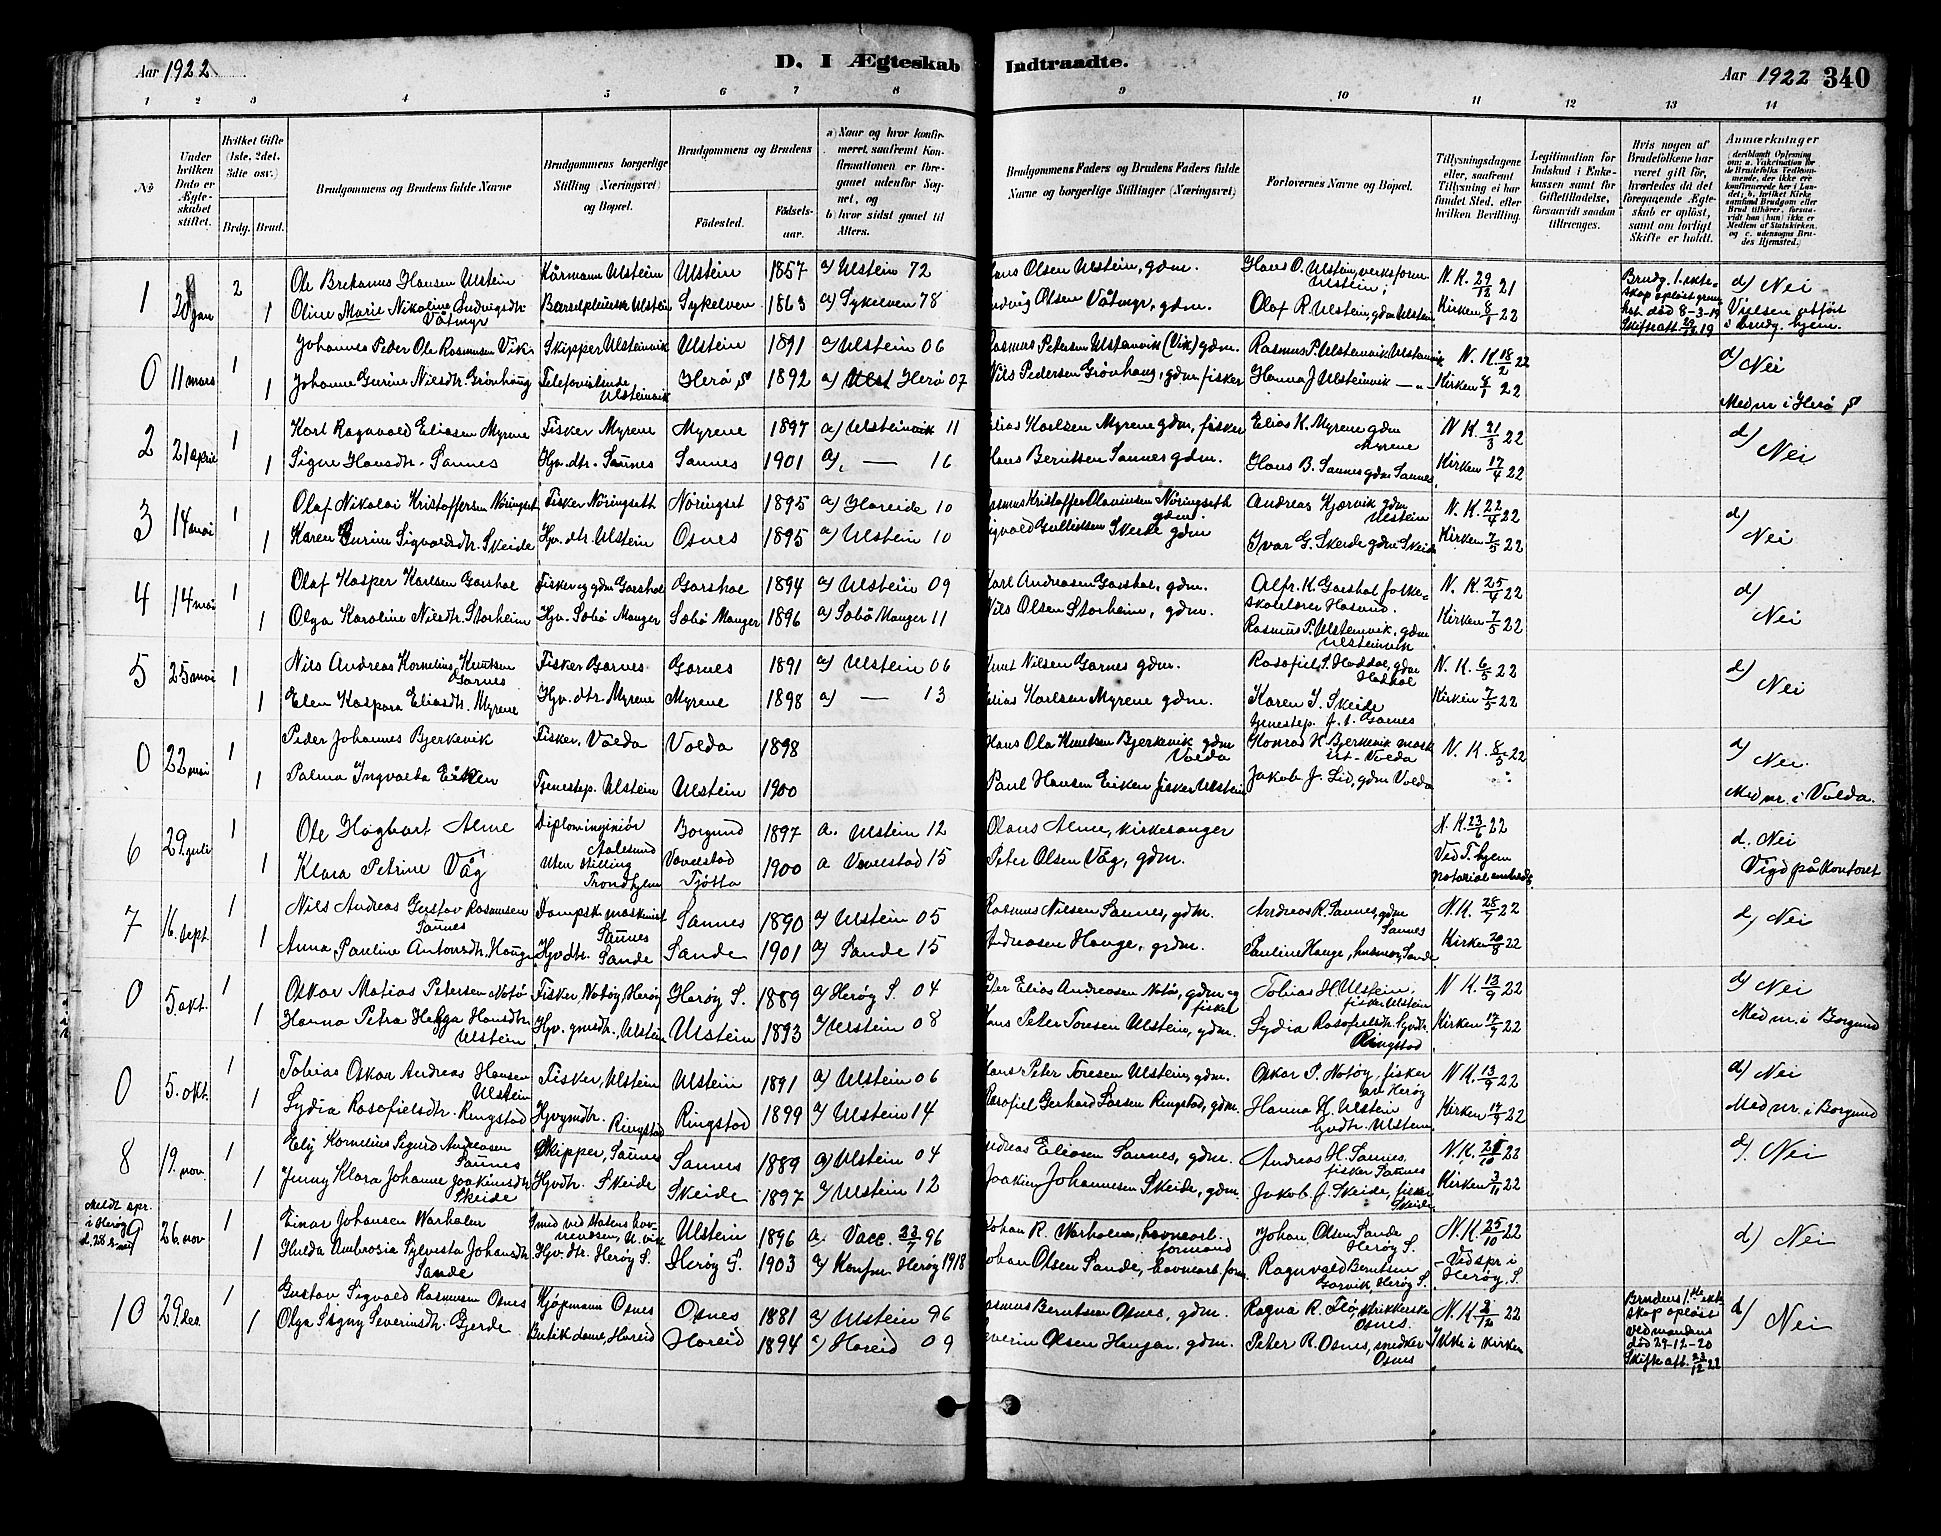 Aar 1922
D. I Ægteskab Indtraadte.
Aar 1922 340
1 2 3 4 5 6 7 8 9 10 11 12 13 14
No
Under hvilken Dato er Ægteskabet stiftet.
Hvilket Gifte (1ste, 2det, 3die osv.)
Brdg. Brud.
Brudgommens og Brudens fulde Navne
Brudgommens borgerlige Stilling (Næringsvei) og Bopæl.
Brudgommens og Brudens
Fødested.
Fødselsaar.
a) Naar og hvor konfirmeret, saafremt Konfirmationen er foregaaet udenfor Sognet, og b) hvor sidst gaaet til Alters.
Brudgommens Faders og Brudens Faders fulde Navne og borgerlige Stillinger (Næringsvei)
Forlovernes Navne og Bopæl.
Tillysningsdagene eller, saafremt Tillysning ei har fundet Sted, efter hvilken Bevilling.
Legitimation for Indskud i Enkekassen samt for Giftetilladelse, forsaavidt saadan tiltrænges.
Hvis nogen af Brudefolkene har været gift før, hvorledes da det foregaaende Ægteskab er opløst, samt om lovligt Skifte er holdt.
Anmærkninger
1 20 Jan 2 Ole Brekanus Hansen Ulstein Kårmann Ulstein Ulstein 1857 a) Ulstein 72 Hans Olsen Ulstein, gdm. Hans O. Ulstein, Ulstein N.K. 29/12 21 Brudg. 1. ekteskap opløst død 8-3-19 Skifteatt. 19 d) Nei
1 Oline Marie Nikoline Ludvigsdtr. Våtmyr Ulstein Sykelven 1863 a) Sykelven 78 Ludvig Olsen Våtmyr, gdm. Olaf R. Ulstein, gdm Ulstein Kirken 8/1 22 Vielsen utført i brudg. hjem.
0 11 mars 1 Johannes Peder Ole Rasmusen Vik Skipper Ulsteinvik Ulstein 1891 a) Ulstein 06 Rasmus Petersen Ulsteinvik (Vik) gdm. Rasmus P. Ulsteinvik Ulsteinvik N.K. 18/2 22 d) Nei
1 Johanne Gurine Nielsdtr. Grönhaug Telefonistinde Ulsteinvik Herö S 1892 a) Herö 07 Nils Pedersen Grönhaug, gdm fisker Hanna J Ulsteinvik — " — Kirken 22 Med nr i Herö S
2 21 april 1 Karl Ragnvald Eliasen Myrene Fisker Myrene Myrene 1897 a) Ulsteinvik 11 Elias Karlsen Myrene gdm, fisker Elias K. Myrene gdm Myrene N K. 21/3 22 d) Nei
1 Signe Hansdtr. Saunes Hjv. dtr. Saunes Saunes 1901 a) — 16 Hans Berntsen Saunes gdm. Hans B. Saunes gdm Saunes Kirken 17/4 22
3 14 mai 1 Olaf Nikolai Kristoffersen Nöringset Fisker Nöringseth Nöringset 1895 a) Hareide 10 Rasmus Kristoffer Olavinsen Nöringseth gdm. Andreas Kjærvik gdm Ulstein N. K. 22/4 22 d) Nei
1 Karen Gurine Sigvaldsdtr. Skeide Hjv. dtr. Ulstein Osnes 1895 a) Ulstein 10 Sigvald Gulliksen Skeide gdm Ivar G. Skeide gdm Skeide Kirken 7/5 22
4 14 mai 1 Olaf Kasper Karlsen Garshol Fisker og gdm Garshol Garshol 1894 a) Ulstein 09 Karl Andreasen Garshol, gdm. Alfr. K. Garshol folkeskolelærer Hasund. N. K. 25/4 22 d) Nei
1 Olga Karoline Nilsdtr. Storheim Hjv. Sæbö Manger Sæbö Manger 1896 a) Sæbö Manger 11 Nils Olsen Storheim, gdm. Rasmus P. Ulsteinvik, gdm Ulsteinvik Kirken 7/5 22
5 25 mai 1 Nils Andreas Kornelius Knutsen Garnes Fisker Garnes Garnes 1891 a) Ulstein 06 Knut Nilsen Garnes gdm. Rosofiel S. Haddal, gdm Haddal N. K. 6/5 22 d) Nei
1 Elen Kaspara Eliasdtr. Myrene Hjv. dtr. Myrene Myrene 1898 a) — 13 Elias Karlsen Myrene gdm. Karen I. Skeide tjenestep. Garnes Kirken 7/5 22
0 22 mai 1 Peder Johannes Bjerkevik Fisker, Volda Volda 1898 Hans Ola Knutsen Bjerkevik gdm Volda Konrad K. Bjerkevik Volda N. K. 8/5 22 d) Nei.
1 Palma Ingvalda Eiken Tjenestep. Ulstein Ulstein 1900 Paul Hansen Eiken fisker Ulstein Jakob J. Lid, gdm Volda Med nr. i Volda.
6 29. juli 1 Ole Hagbart Alme Diplomingeniör Aalesund Borgund 1897 a. Ulstein 12 Olaus Alme, kirkesanger N. K. 23/6 22 d. Nei
1 Klara Petrine Våg Uten stilling Trondhjem Vevelstad Tjötta 1900 a Vevelstad 15 Peter Olsen Våg, gdm. Ved T.hjem notarialembede Vigd på kontoret
7 16. sept. 1 Nils Andreas Gustav Rasmusen Saunes Dampsk. maskinist Saunes Saunes 1890 a) Ulstein 05 Rasmus Nilsen Saunes, gdm. Andreas R. Saunes, gdm Saunes N.K. 28/7 22 d) Nei
1 Anna Pauline Antonsdtr. Hauge Hjvdtr. Sande Sande 1901 a) Sande 15 Andreasen Hauge, grdm. Pauline Hauge, Sande Kirken 20/8 22
0 5. okt. 1 Oskar Matias Petersen Notö Fisker, Notöy, Heröy Heröy S. 1889 a) Heröy S. 04 Peter Elias Andreasen Notö, gdm og fisker Tobias H. Ulstein, fisker Ulstein N K. 13/9 22 d) Nei
1 Hanna Petra Helga Hansdtr. Ulstein Hjv. grmdtr., Ulstein Ulstein 1893 a) Ulstein 08 Hans Peter Toresen Ulstein, gdm. Lydia Rosofielsdtr. hjvdtr. Ringstad Kirken 17/9 22 Med nr. i Borgund
0 5. okt. 1 Tobias Oskar Andreas Hansen Ulstein Fisker, Ulstein Ulstein 1891 a) Ulstein 06 Hans Peter Toresen Ulstein, gdm. Oskar P. Notöy, fisker av Heröy N K. 13/9 22 d) Nei
1 Lydia Rosofielsdtr. Ringstad Ringstad Ringstad 1899 a) Ulstein 14 Rosofiel Gerhard Larsen Ringstad, gdm. Hanna H. Ulstein hjvdtr. Ulstein Kirken 17/9 22 Med nr. i Borgund
8 19. nov. 1 Kornelius Sigurd Andreasen Saunes Skipper, Saunes Saunes 1889 a) Ulstein 04 Andreas Eliasen Saunes, gdm. Andreas H. Saunes, fisker Saunes N.K. 10 22 d). Nei
1 Jenny Klara Johanne Joakimsdtr. Skeide Hjvdtr. Skeide Skeide 1897 a) Ulstein 12 Joakim Johannesen Skeide, gdm. Jakob J. Skeide, fisker Skeide Kirken 3/11 22
Meldt spr. i Heröy
9 26. nov 1 Einar Johansen Warholm Smed ved Statens havnevæsen, U.vik Ulstein 1896 a) Vacc. 96 Johan R. Warholm, havnearb. formand Johan Olsen Sande Heröy S. N.K. 25/10 22 d) Nei
1 Hulda Ambrosia Sylvesta Johansdtr. Sande Hjv. dtr. Heröy S. Heröy S. 1903 a) Konfm. Heröy 1918 Johan Olsen Sande, havnearb. form. Ragnvald Berntsen Heröy S. - Ved spr i Heröy, S.
10 29. des. 1 Gustav Sigvald Rasmusen Osnes Kjøpmann Osnes Osnes 1881 a) Ulstein 96 Rasmus Berntsen Osnes, gdm. Ragna R. Flö, Osnes N.K. 22 Brudens 1ste ekteskap opløst ved mandens död 29-12-20 Skifteatt. 23/12 22 d) Nei
1 Olga Signy Severinsdtr. Gjerde Butikdame, Hareid Hareid 1894 a) Hareid 09 Severin Olsen, gdm. Peter R. Osnes, snedker Osnes Ikke i kirken